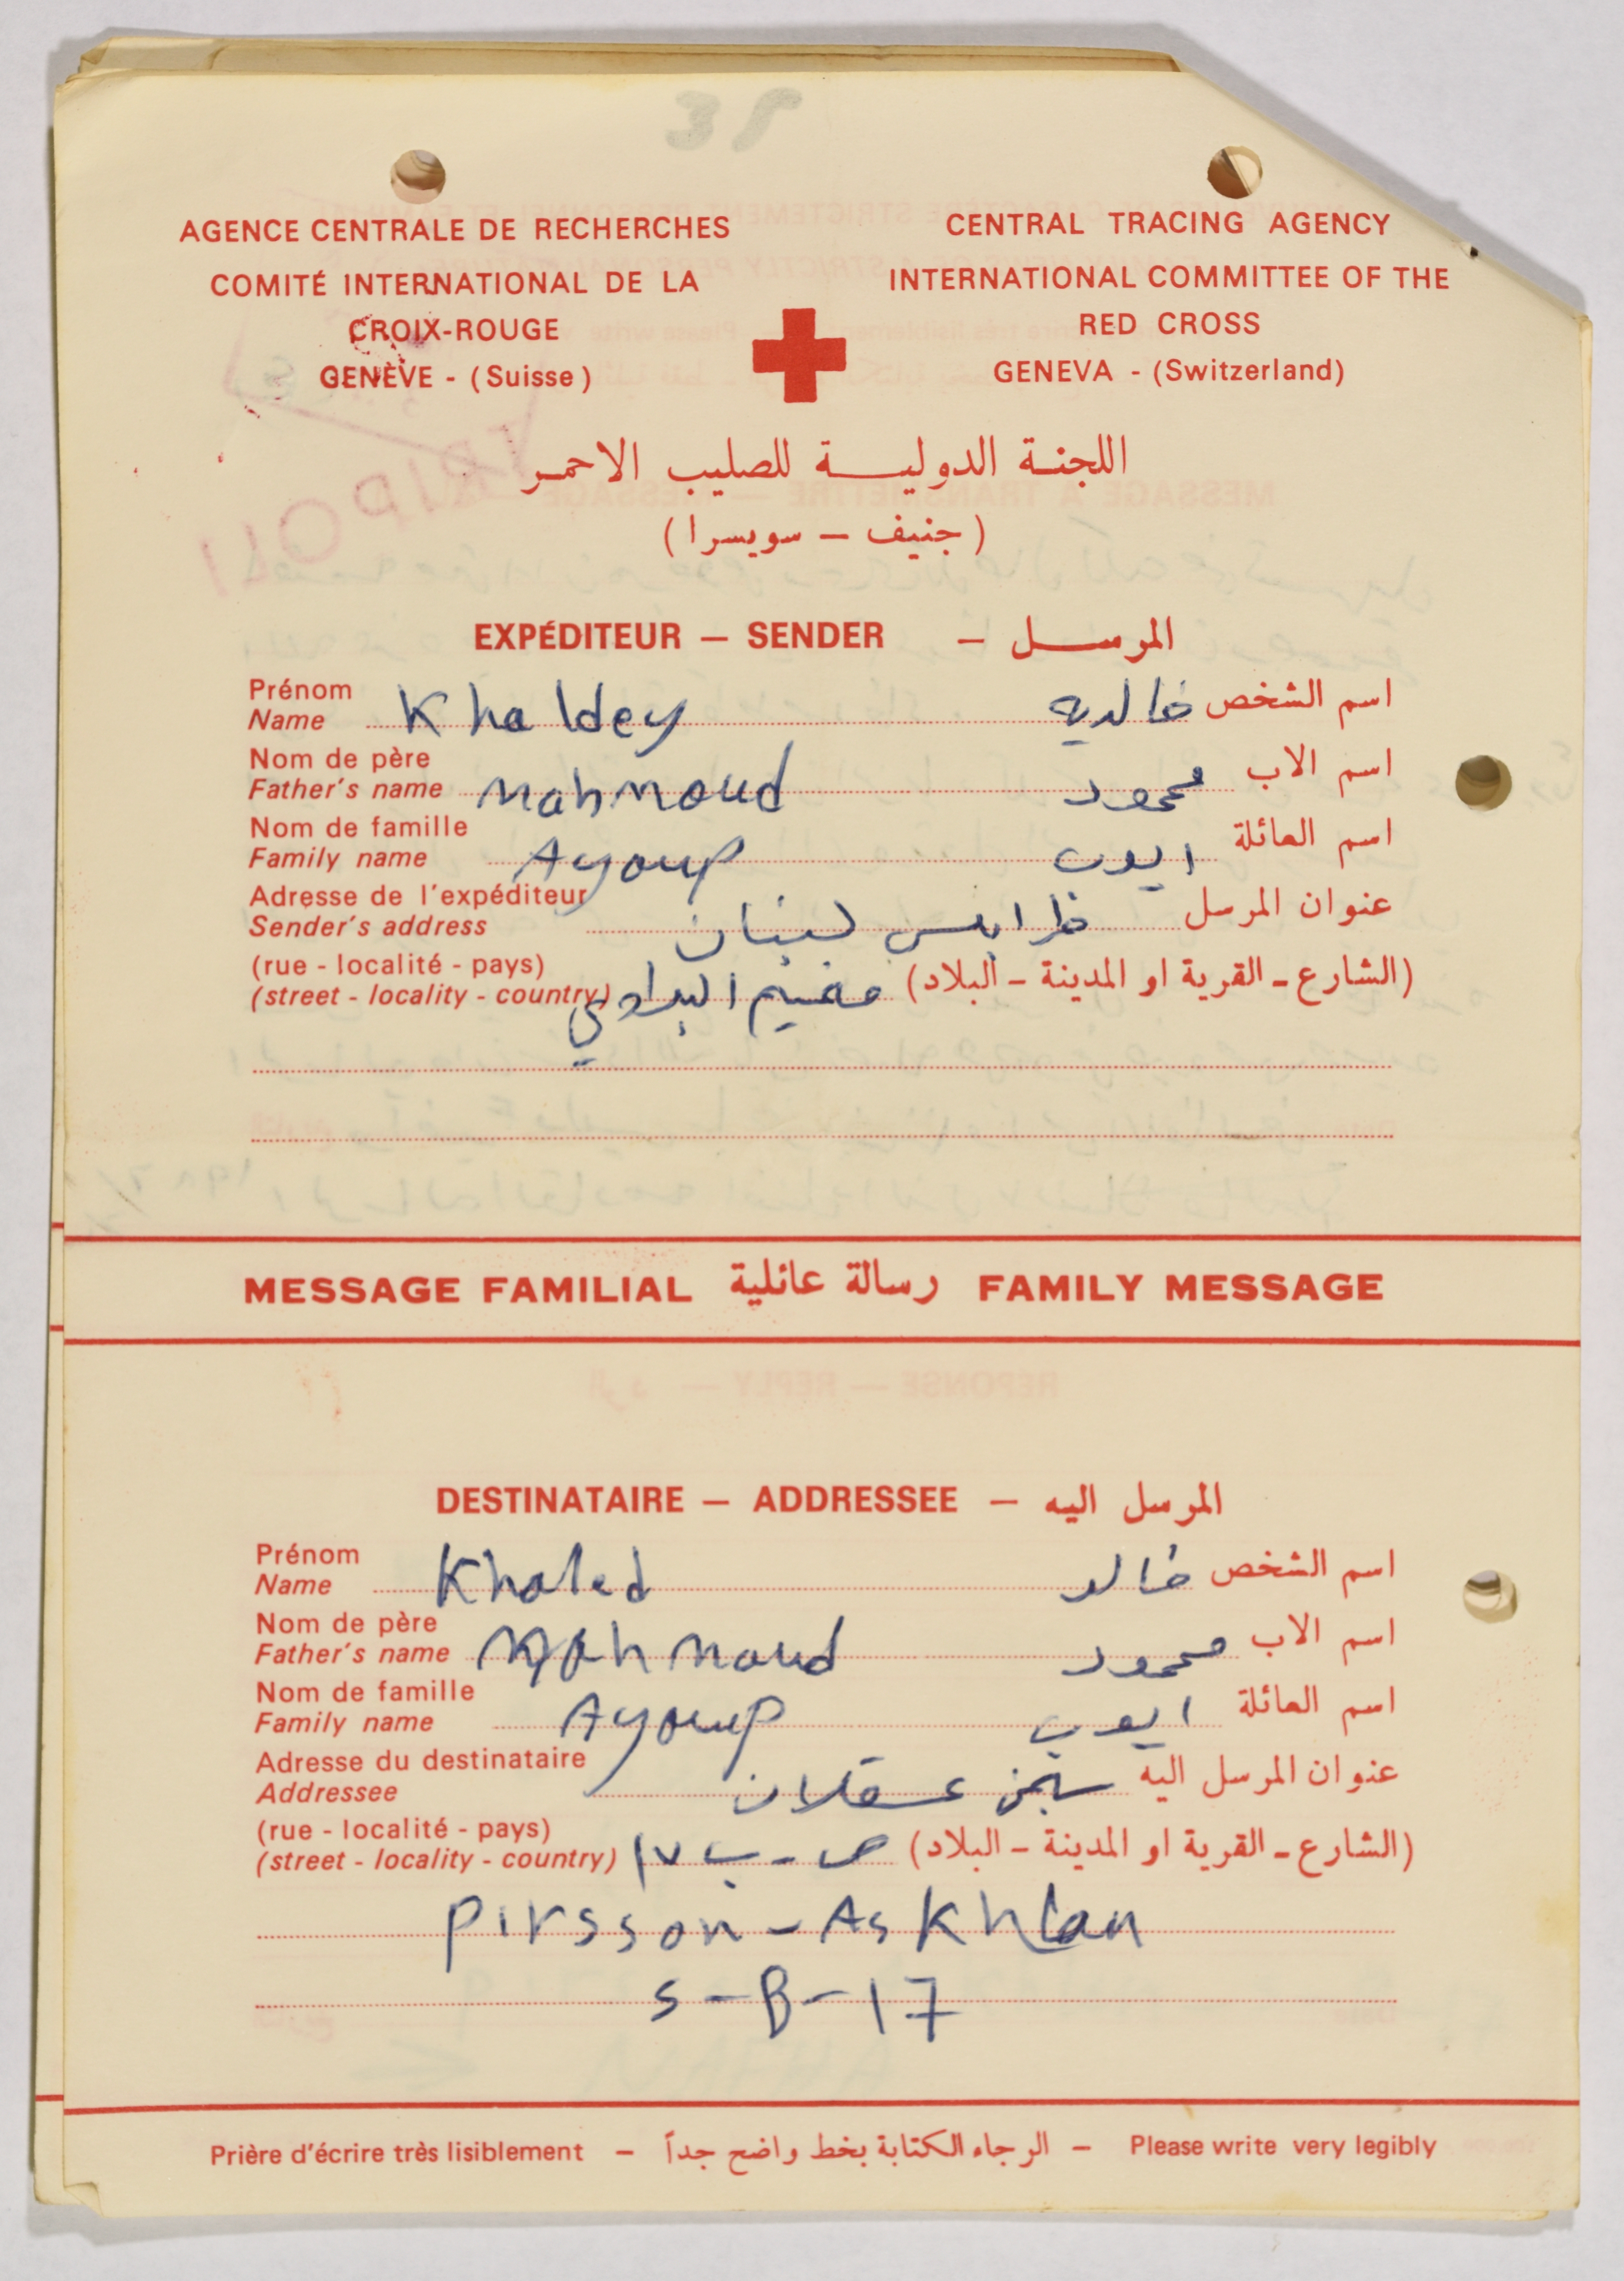 38
AGENCE CENTRALE DE RECHERCHES
COMITÉ INTERNATIONAL DE LA
CROIX-ROUGE
GENÈVE - (Suisse)
CENTRAL TRACING AGENCY
INTERNATIONAL COMMITTEE OF THE
RED CROSS
GENEVA - (Switzerland)
اللجنة الدولية للصليب الاحمر
(جنيف – سويسرا)
TRIPOLI
EXPÉDITEUR – SENDER – المرسل
Prénom
Name Khaldey خالديه اسم الشخص
Nom de père
Father's name Mahmoud محمود اسم الاب
Nom de famille
Family name Ayoup ايوب اسم العائلة
Adresse de l'expéditeur
Sender's address طرابلس لبنان عنوان المرسل
(rue - localité - pays)
(street - locality - country) مخيم البداوي (الشارع - القرية او المدينة - البلاد)
MESSAGE FAMILIAL رسالة عائلية FAMILY MESSAGE
DESTINATAIRE – ADDRESSEE – المرسل اليه
Prénom
Name Khaled خالد اسم الشخص
Nom de père
Father's name Mahmoud محمود اسم الاب
Nom de famille
Family name Ayoup ايوب اسم العائلة
Adresse du destinataire
Addressee سجن عسقلان عنوان المرسل اليه
(rue - localité - pays)
(street - locality - country) ص - ب ١٧ (الشارع - القرية او المدينة - البلاد)
Pirsson - Askhlan
S - B - 17
Prière d'écrire très lisiblement – الرجاء الكتابة بخط واضح جداً – Please write very legibly